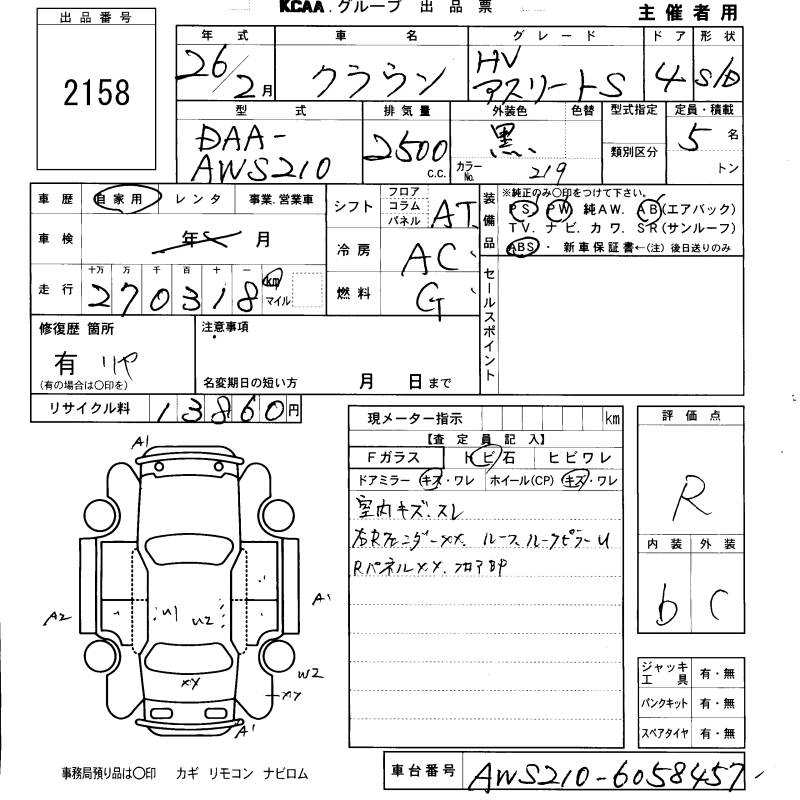 KCAA.グループ 出品票
主催者用
出品番号
2158
年式 車名 グレード ドア 形状
26/2月 クラウン HV アスリートS 4 S/D
型式 排気量 外装色 色替 型式指定 定員・積載
DAA-AWS210 2500 C.C. 黒 カラーNo. 219 類別区分 5名
トン
車歴 自家用 レンタ 事業.営業車
車検 年 月
走行 十万 万 千 百 十 一
270318 km マイル
シフト フロア コラム パネル AT
冷房 AC
燃料 G
装備品
※純正のみ〇印をつけて下さい。
PS PW 純AW. AB(エアバック)
TV. ナビ. カワ. SR(サンルーフ)
ABS・ 新車保証書←(注) 後日送りのみ
セールスポイント
修復歴 箇所
有 リヤ
(有の場合は〇印を)
注意事項
名変期日の短い方 月 日まで
リサイクル料 13860円
現メーター指示 km
【査定員記入】
Fガラス トビ石 ヒビワレ
ドアミラー キズ・ワレ ホイール(CP) キズ・ワレ
室内キズ.スレ
右Rフェンダーxx. ルーフ.ルーフピラーU
RパネルXX. フロアBP
評価点
R
内装 外装
b C
A1
A2
U1 U2
A1
W2
XX
XX
A1
ジャッキ工具 有・無
パンクキット 有・無
スペアタイヤ 有・無
事務局預り品は〇印 カギ リモコン ナビロム
車台番号 AWS210-6058457